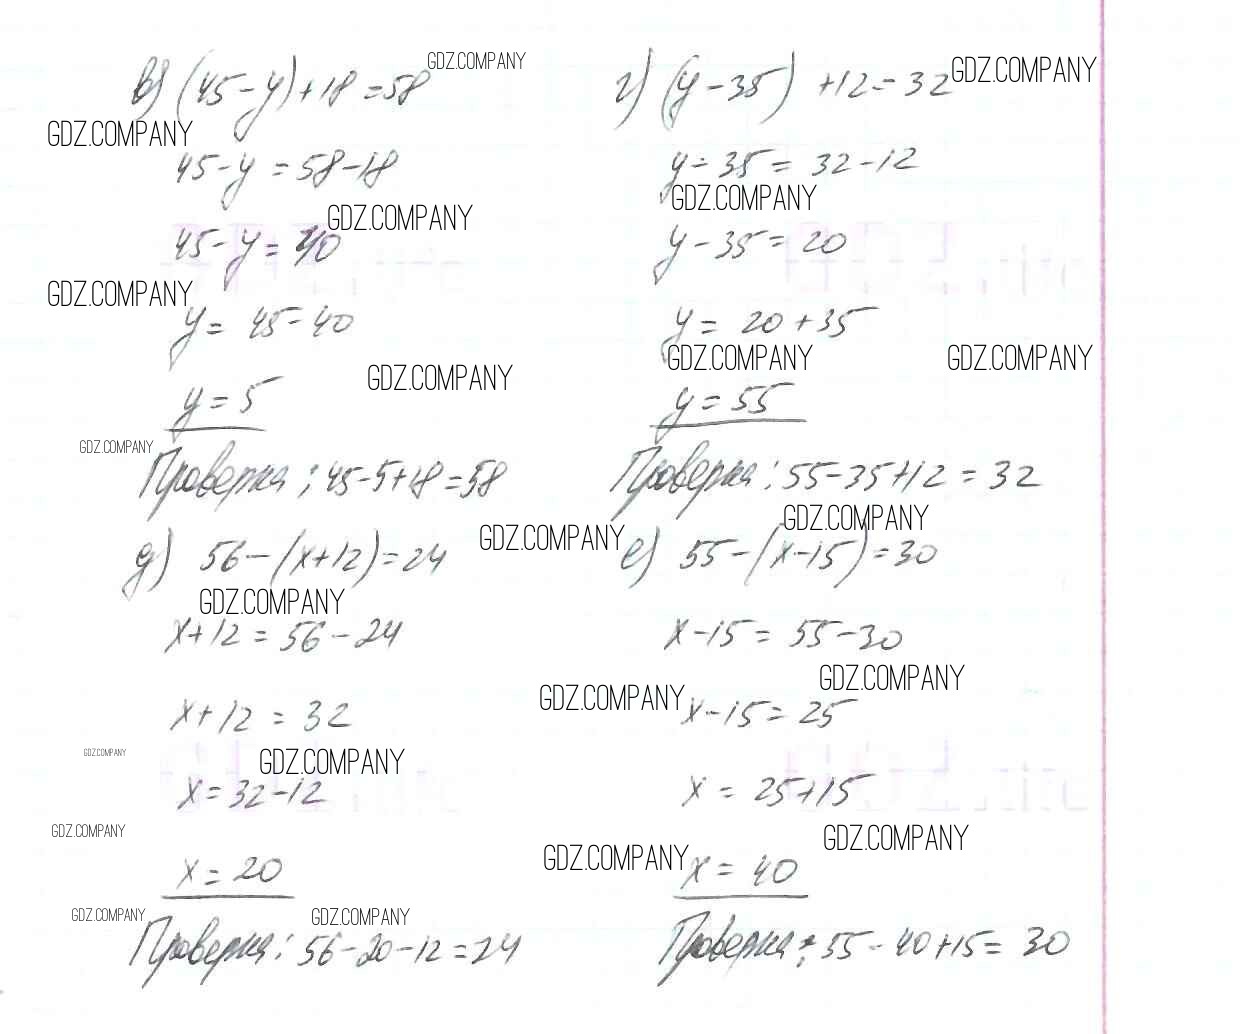 в) (45-y)+18=58 GDZ.COMPANY
GDZ.COMPANY
45-y=58-18
GDZ.COMPANY
45-y=40
GDZ.COMPANY
y=45-40
GDZ.COMPANY
y=5
GDZ.COMPANY
Проверка: 45-5+18=58
г) (y-35)+12=32 GDZ.COMPANY
y-35=32-12
GDZ.COMPANY
y-35=20
y=20+35
GDZ.COMPANY GDZ.COMPANY
y=55
Проверка: 55-35+12=32
GDZ.COMPANY
д) 56-(x+12)=24 GDZ.COMPANY
GDZ.COMPANY
x+12=56-24
x+12=32
GDZ.COMPANY GDZ.COMPANY
x=32-12
GDZ.COMPANY
x=20
GDZ.COMPANY GDZ.COMPANY
Проверка: 56-20-12=24
е) 55-(x-15)=30
x-15=55-30
GDZ.COMPANY GDZ.COMPANY
x-15=25
x=25+15
GDZ.COMPANY
GDZ.COMPANY x=40
Проверка: 55-40+15=30